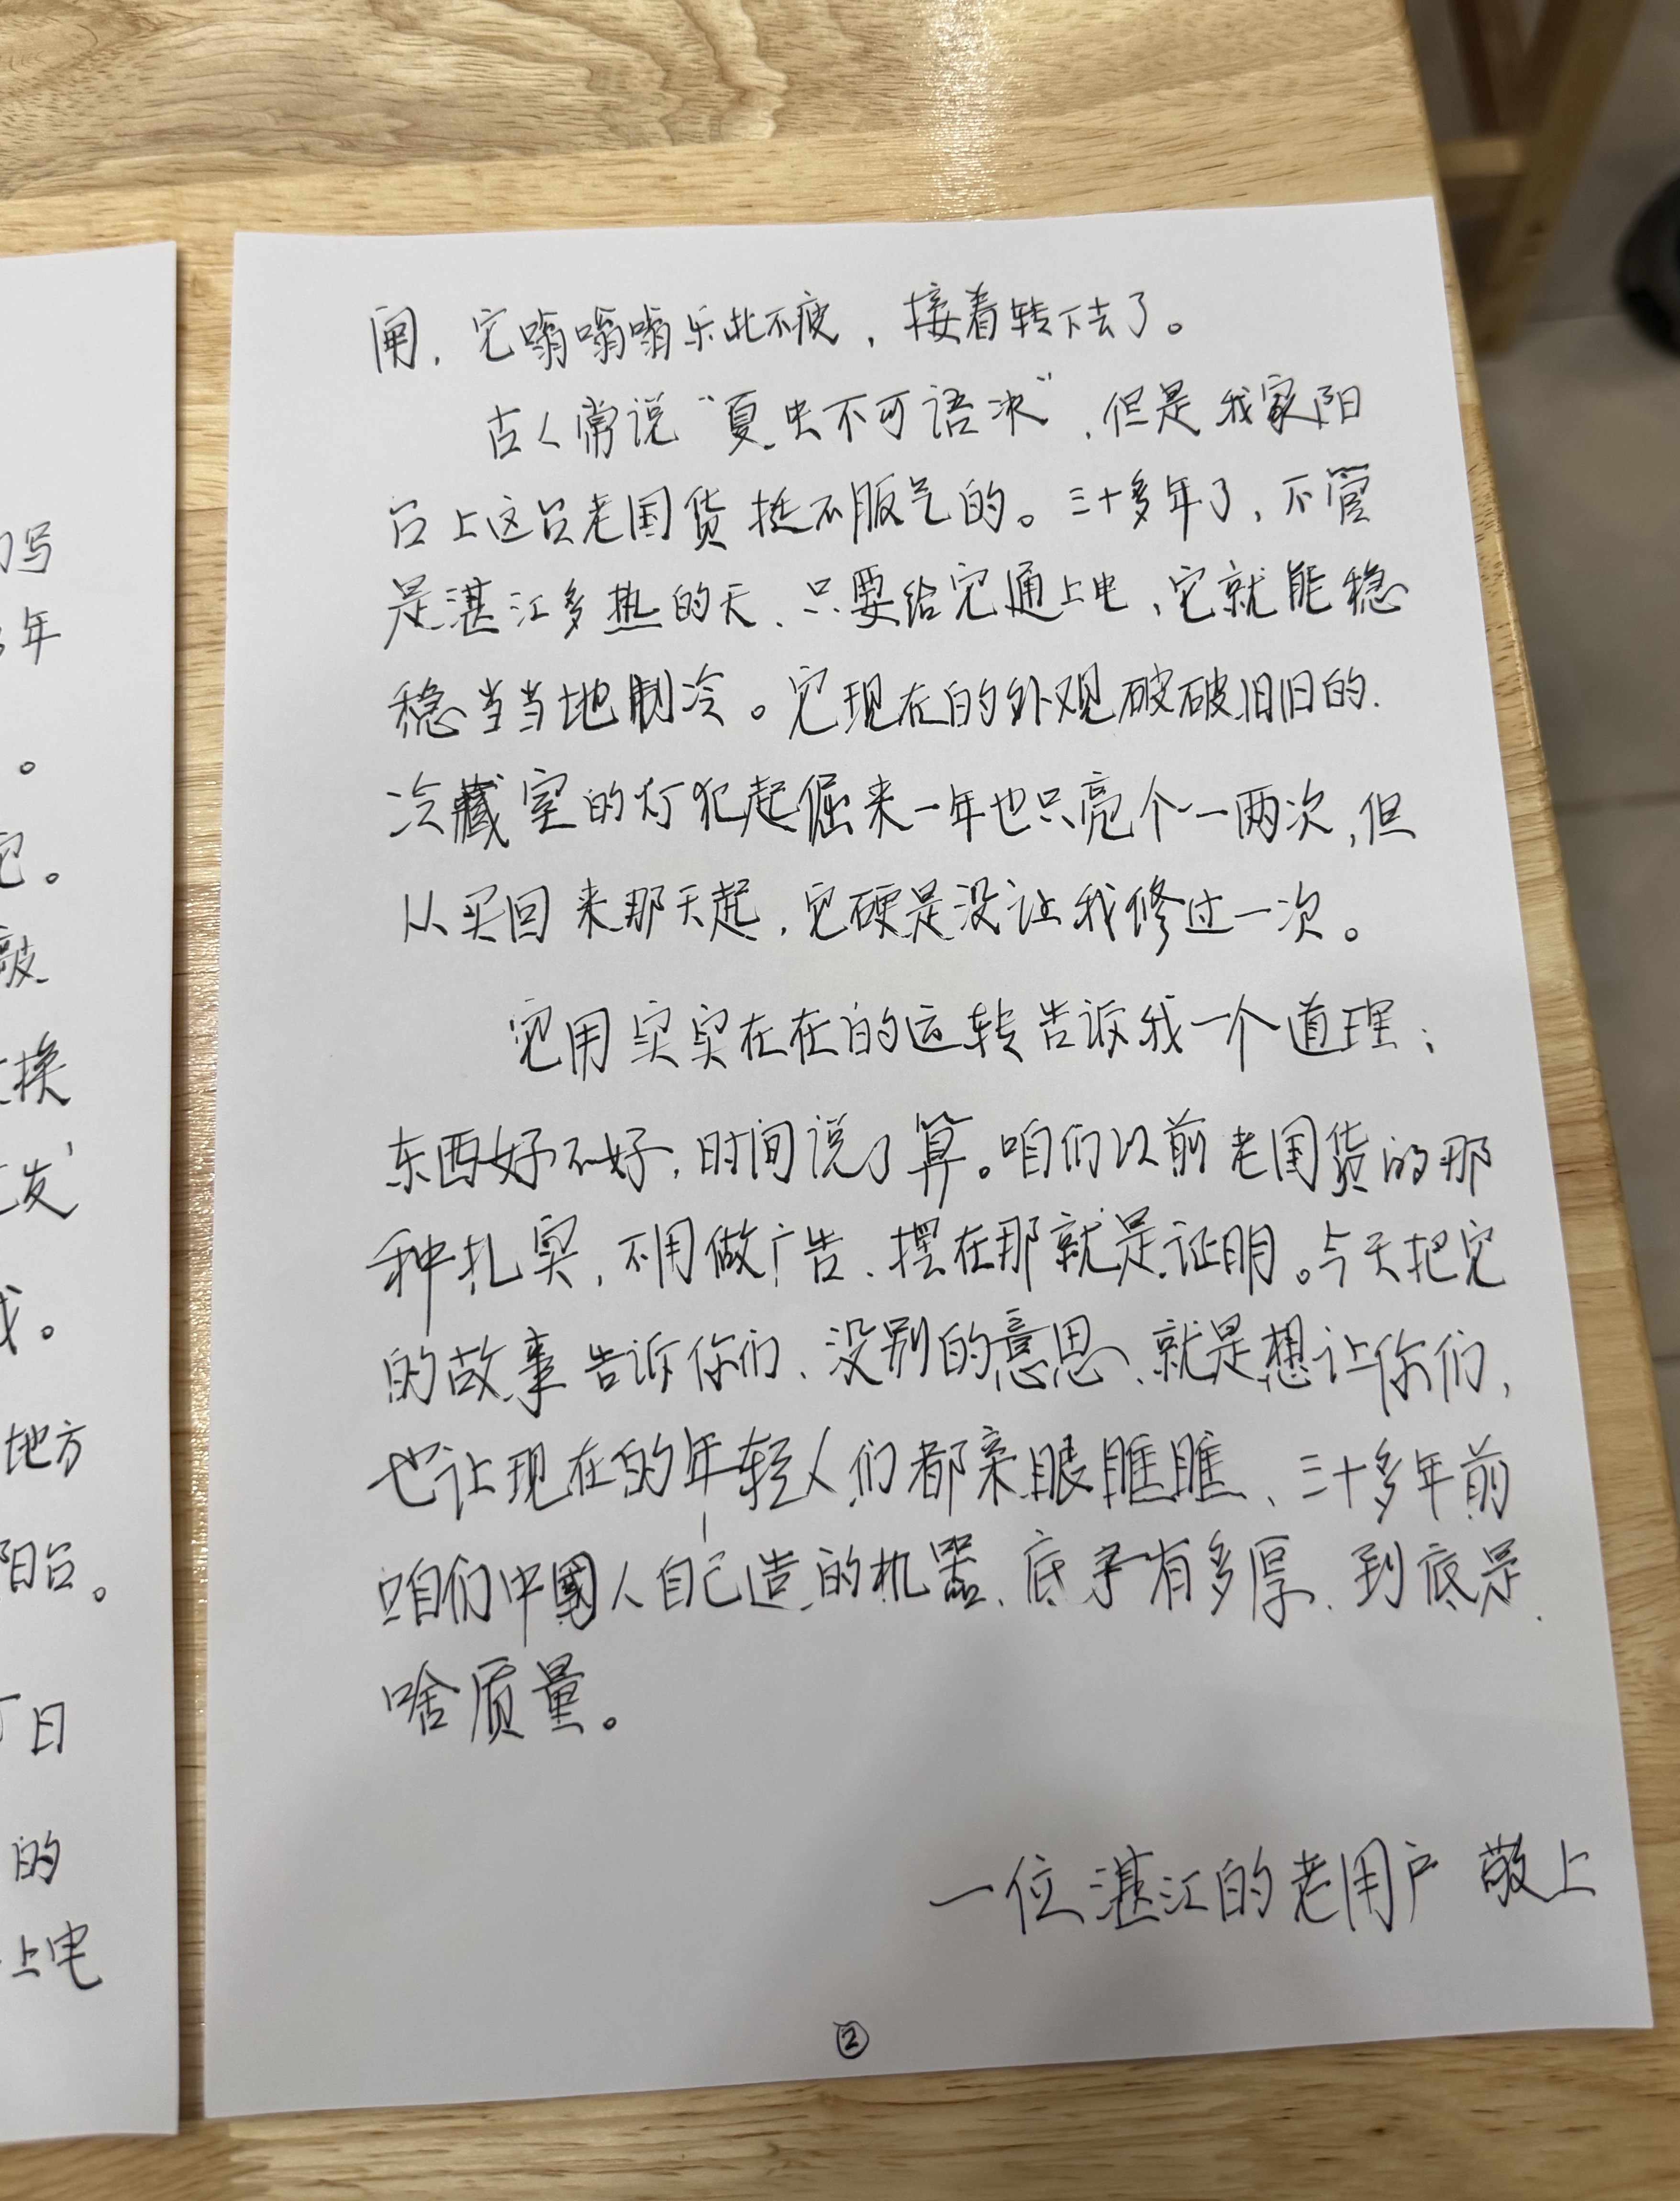 闸，它嗡嗡嗡乐此不疲，接着转下去了。
古人常说“夏虫不可语冰”，但是我家阳
台上这只老国货挺不服气的。三十多年了，不管
是湛江多热的天、只要给它通上电、它就能稳
稳当当地制冷。它现在的外观破破旧旧的.
冷藏室的灯犯起倔来一年也只亮个一两次，但
从买回来那天起，它硬是没让我修过一次。
它用实实在在的运转告诉我一个道理：
东西好不好，时间说了算。咱们以前老国货的那
种扎实，不用做广告、摆在那就是证明。今天把它
的故事告诉你们、没别的意思、就是想让你们，
也让现在的年轻人们都亲眼瞧瞧、三十多年前
咱们中國人自己造的机器、底子有多厚、到底是
啥质量。
一位湛江的老用户 敬上
②
写
年
。
它。
敲
换
发
我。
地方
阳台。
日
的
上电